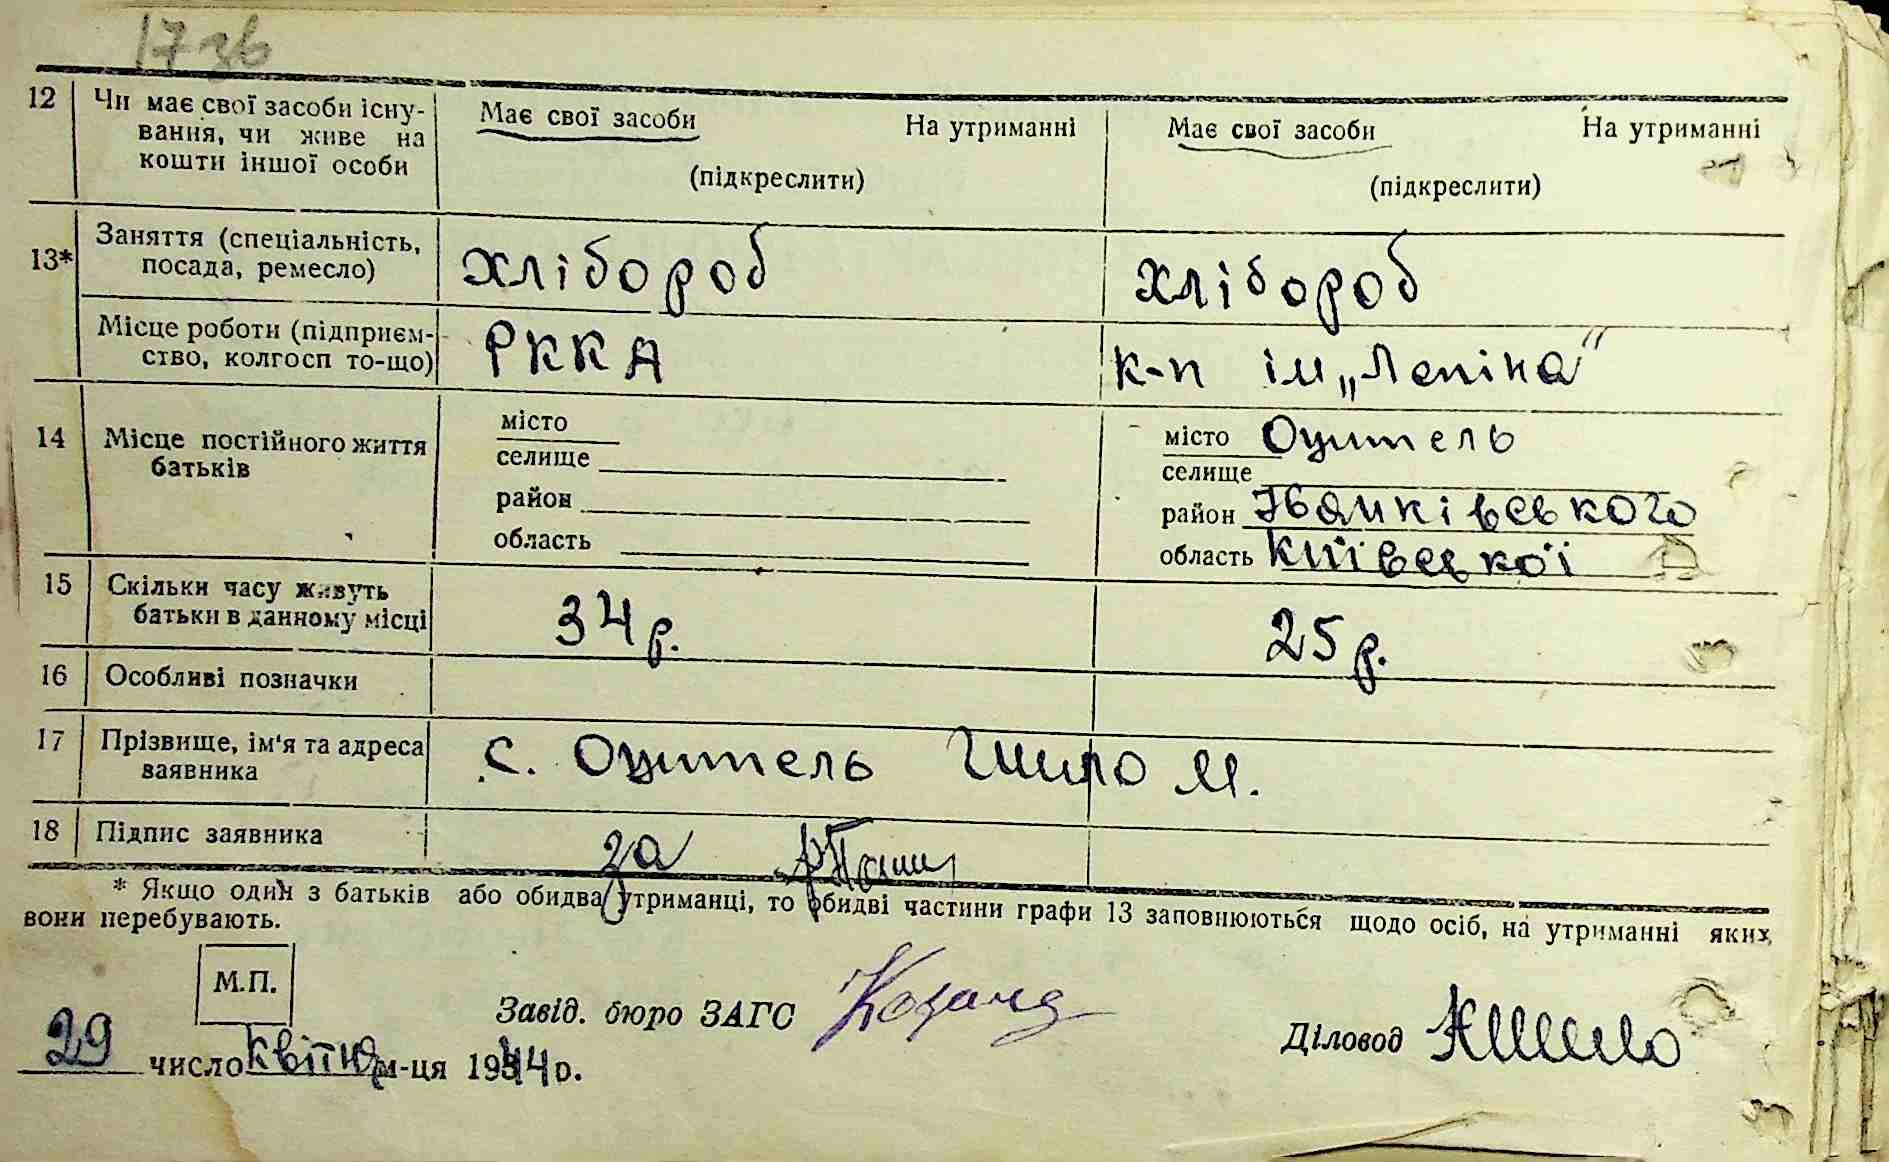 17 зв
12 Чи має свої засоби існу- Має свої засоби На утриманні Має свої засоби На утриманні
вання, чи живе на
кошти іншої особи (підкреслити) (підкреслити)
13* Заняття (спеціальність, хлібороб хлібороб
посада, ремесло)
Місце роботи (підприєм- РККА к-п ім „Леніна"
ство, колгосп то-що)
14 Місце постійного життя місто місто Оцитель
батьків селище селище
район район Іванківського
область область Київської
15 Скільки часу живуть 34 р. 25 р.
батьки в данному місці
16 Особливі позначки
17 Прізвище, ім'я та адреса с. Оцитель Шило М.
заявника
18 Підпис заявника за
* Якщо один з батьків або обидва утриманці, то обидві частини графи 13 заповнюються щодо осіб, на утриманні яких
вони перебувають.
М.П.
Завід. бюро ЗАГС
Діловод
29 число квітня м-ця 1944 р.